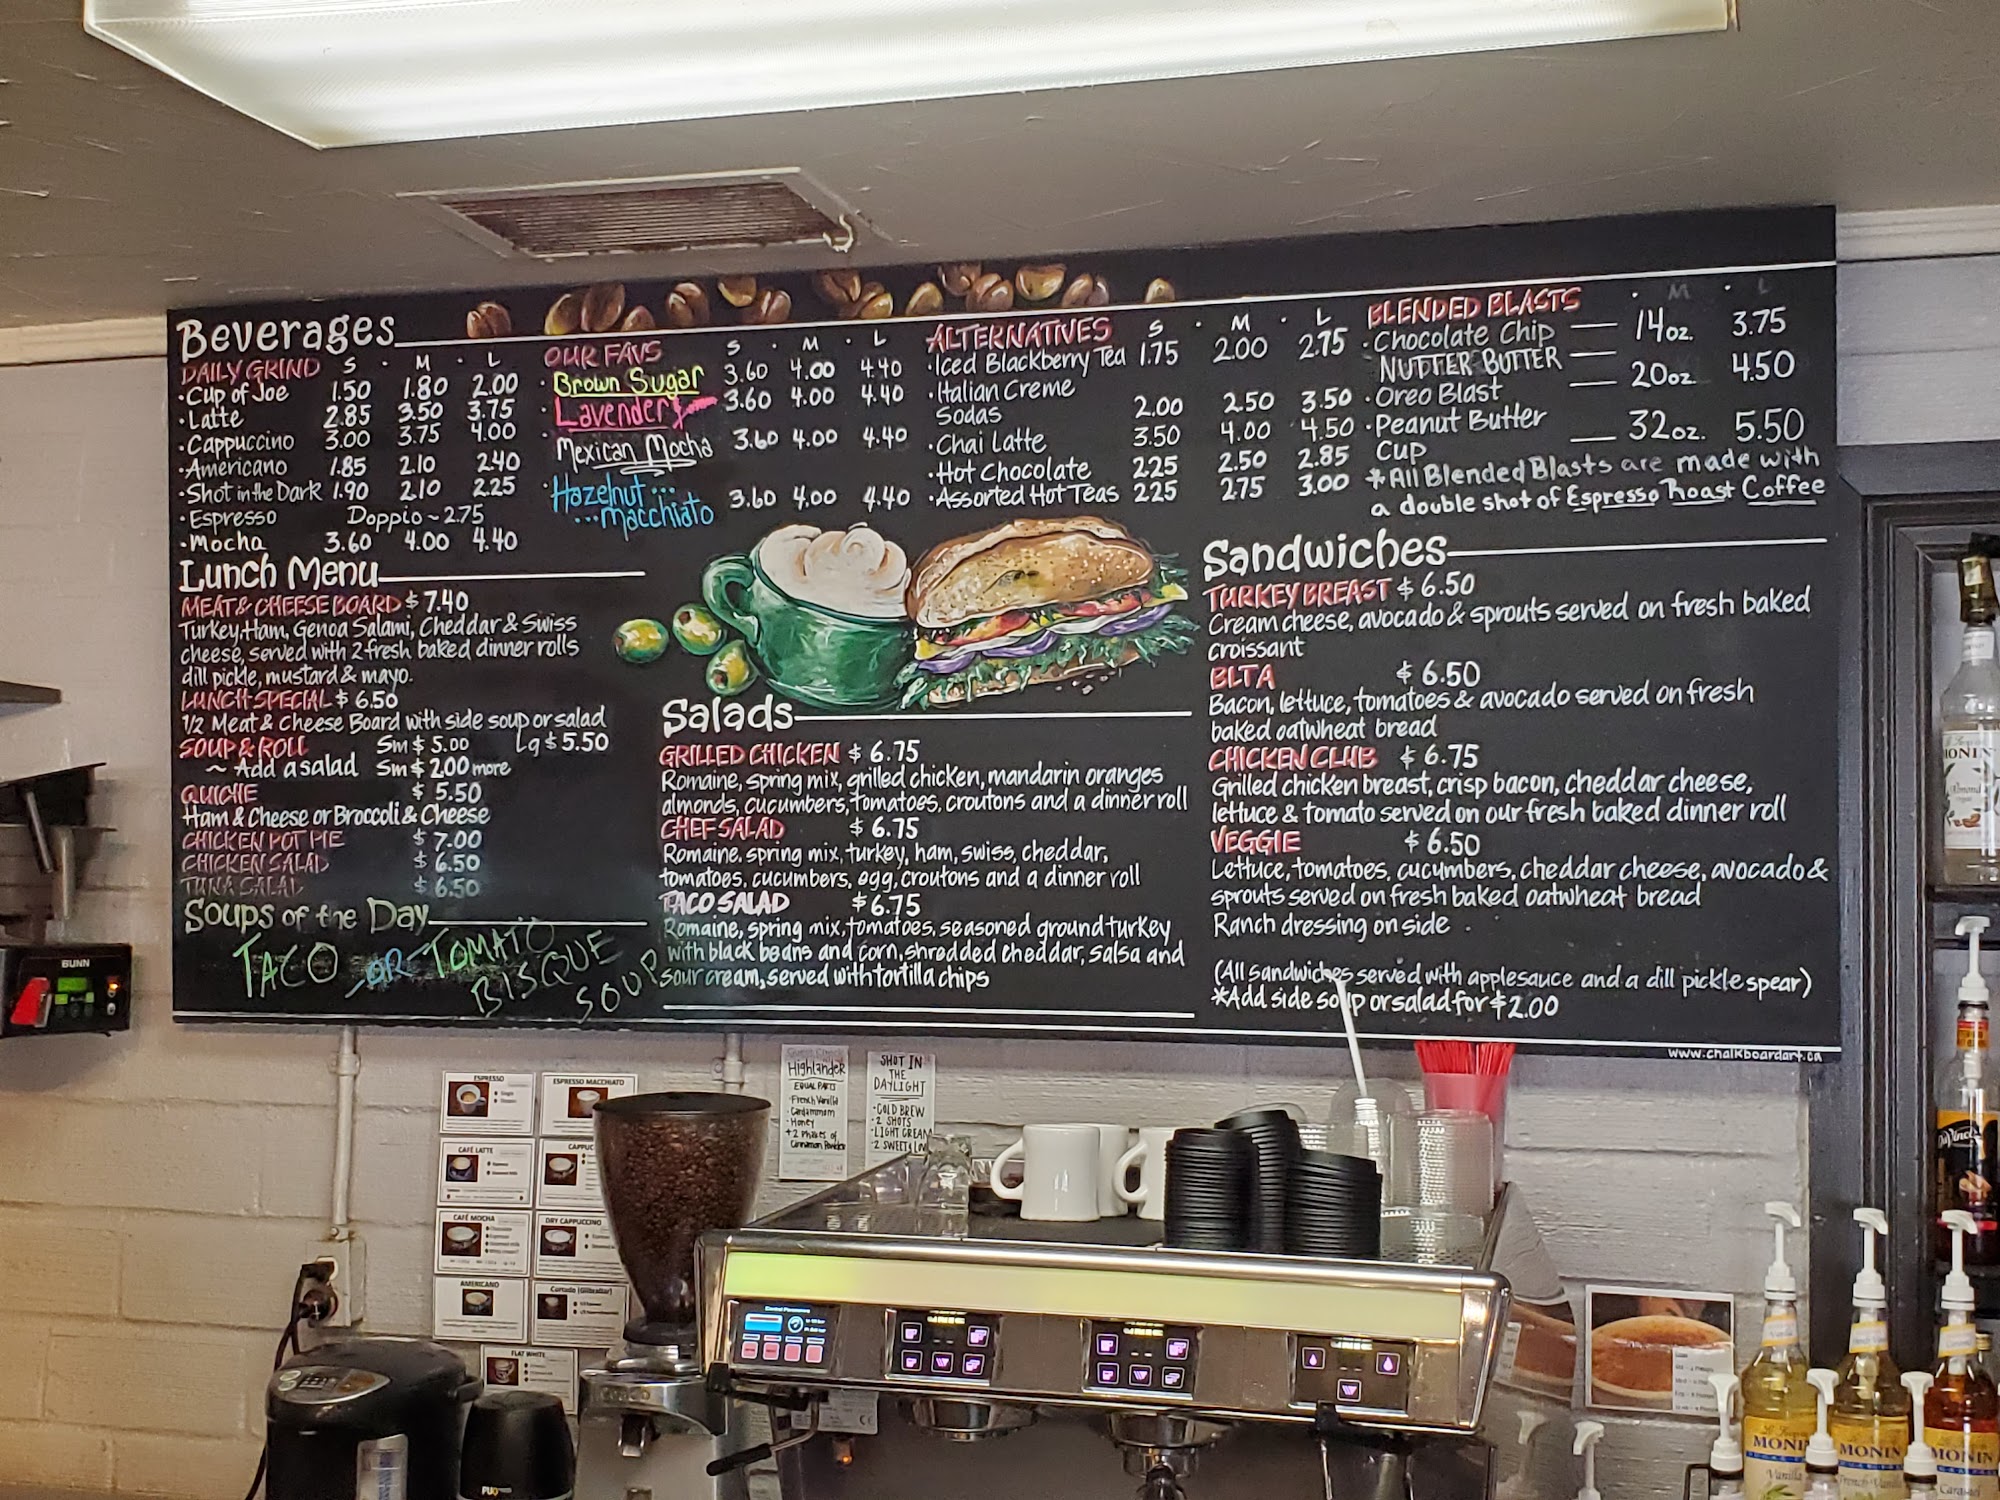 Beverages
DAILY GRIND S · M · L
·Cup of Joe 1.50 1.80 2.00
·Latte 2.85 3.50 3.75
·Cappuccino 3.00 3.75 4.00
·Americano 1.85 2.10 2.40
·Shot in the Dark 1.90 2.10 2.25
·Espresso Doppio ~ 2.75
·Mocha 3.60 4.00 4.40
OUR FAVS S · M · L
·Brown Sugar 3.60 4.00 4.40
·Lavender 3.60 4.00 4.40
·Mexican Mocha 3.60 4.00 4.40
·Hazelnut...
...macchiato 3.60 4.00 4.40
ALTERNATIVES S · M · L
·Iced Blackberry Tea 1.75 2.00 2.75
·Italian Creme
Sodas 2.00 2.50 3.50
·Chai Latte 3.50 4.00 4.50
·Hot Chocolate 2.25 2.50 2.85
·Assorted Hot Teas 2.25 2.75 3.00
BLENDED BLASTS · M · L
·Chocolate Chip — 14oz. 3.75
NUTTER BUTTER
·Oreo Blast — 20oz 4.50
·Peanut Butter
Cup — 32oz. 5.50
*All Blended Blasts are made with
a double shot of Espresso Roast Coffee
Lunch Menu
MEAT & CHEESE BOARD $7.40
Turkey, Ham, Genoa Salami, Cheddar & Swiss
cheese, served with 2 fresh baked dinner rolls
dill pickle, mustard & mayo.
LUNCH SPECIAL $6.50
1/2 Meat & Cheese Board with side soup or salad
SOUP & ROLL Sm $5.00 Lg $5.50
~ Add a salad Sm $2.00 more
QUICHE $5.50
Ham & Cheese or Broccoli & Cheese
CHICKEN POT PIE $7.00
CHICKEN SALAD $6.50
TUNA SALAD $6.50
Soups of the Day
TACO OR TOMATO
BISQUE
SOUP
Salads
GRILLED CHICKEN $6.75
Romaine, spring mix, grilled chicken, mandarin oranges
almonds, cucumbers, tomatoes, croutons and a dinner roll
CHEF SALAD $6.75
Romaine, spring mix, turkey, ham, swiss, cheddar,
tomatoes, cucumbers, egg, croutons and a dinner roll
TACO SALAD $6.75
Romaine, spring mix, tomatoes, seasoned ground turkey
with black beans and corn, shredded cheddar, salsa and
sour cream, served with tortilla chips
Sandwiches
TURKEY BREAST $6.50
Cream cheese, avocado & sprouts served on fresh baked
croissant
BLTA $6.50
Bacon, lettuce, tomatoes & avocado served on fresh
baked oatwheat bread
CHICKEN CLUB $6.75
Grilled chicken breast, crisp bacon, cheddar cheese,
lettuce & tomato served on our fresh baked dinner roll
VEGGIE $6.50
Lettuce, tomatoes, cucumbers, cheddar cheese, avocado &
sprouts served on fresh baked oatwheat bread
Ranch dressing on side
(All sandwiches served with applesauce and a dill pickle spear)
*Add side soup or salad for $2.00
www.chalkboardart.ca
BUNN
Highlander
EQUAL PARTS
·French Vanilla
·Cardammom
·Honey
+2 Phases of
Cinnamon Powder
SHOT IN
THE
DAYLIGHT
·COLD BREW
·2 SHOTS
·LIGHT CREAM
·2 SWEET & LOW
ESPRESSO
ESPRESSO MACCHIATO
CAFÉ LATTE
CAPPUC
CAFÉ MOCHA
DRY CAPPUCCINO
AMERICANO
Cortado (Gilbraltar)
FLAT WHITE
MONIN
Almond
DaVinci
MONIN
Vanilla
MONIN
French Vanilla
MONIN
Caramel